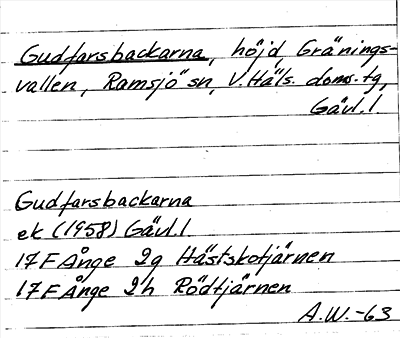 Gudfarsbackarna, höjd, Gränings-
vallen, Ramsjö sn, V. Häls. doms.-tg,
Gävl. l.
Gudfarsbackarna
ek (1958) Gävl. l
17F Ånge 2g Hästskotjärnen
17F Ånge 2h Rödtjärnen
A.W. -63